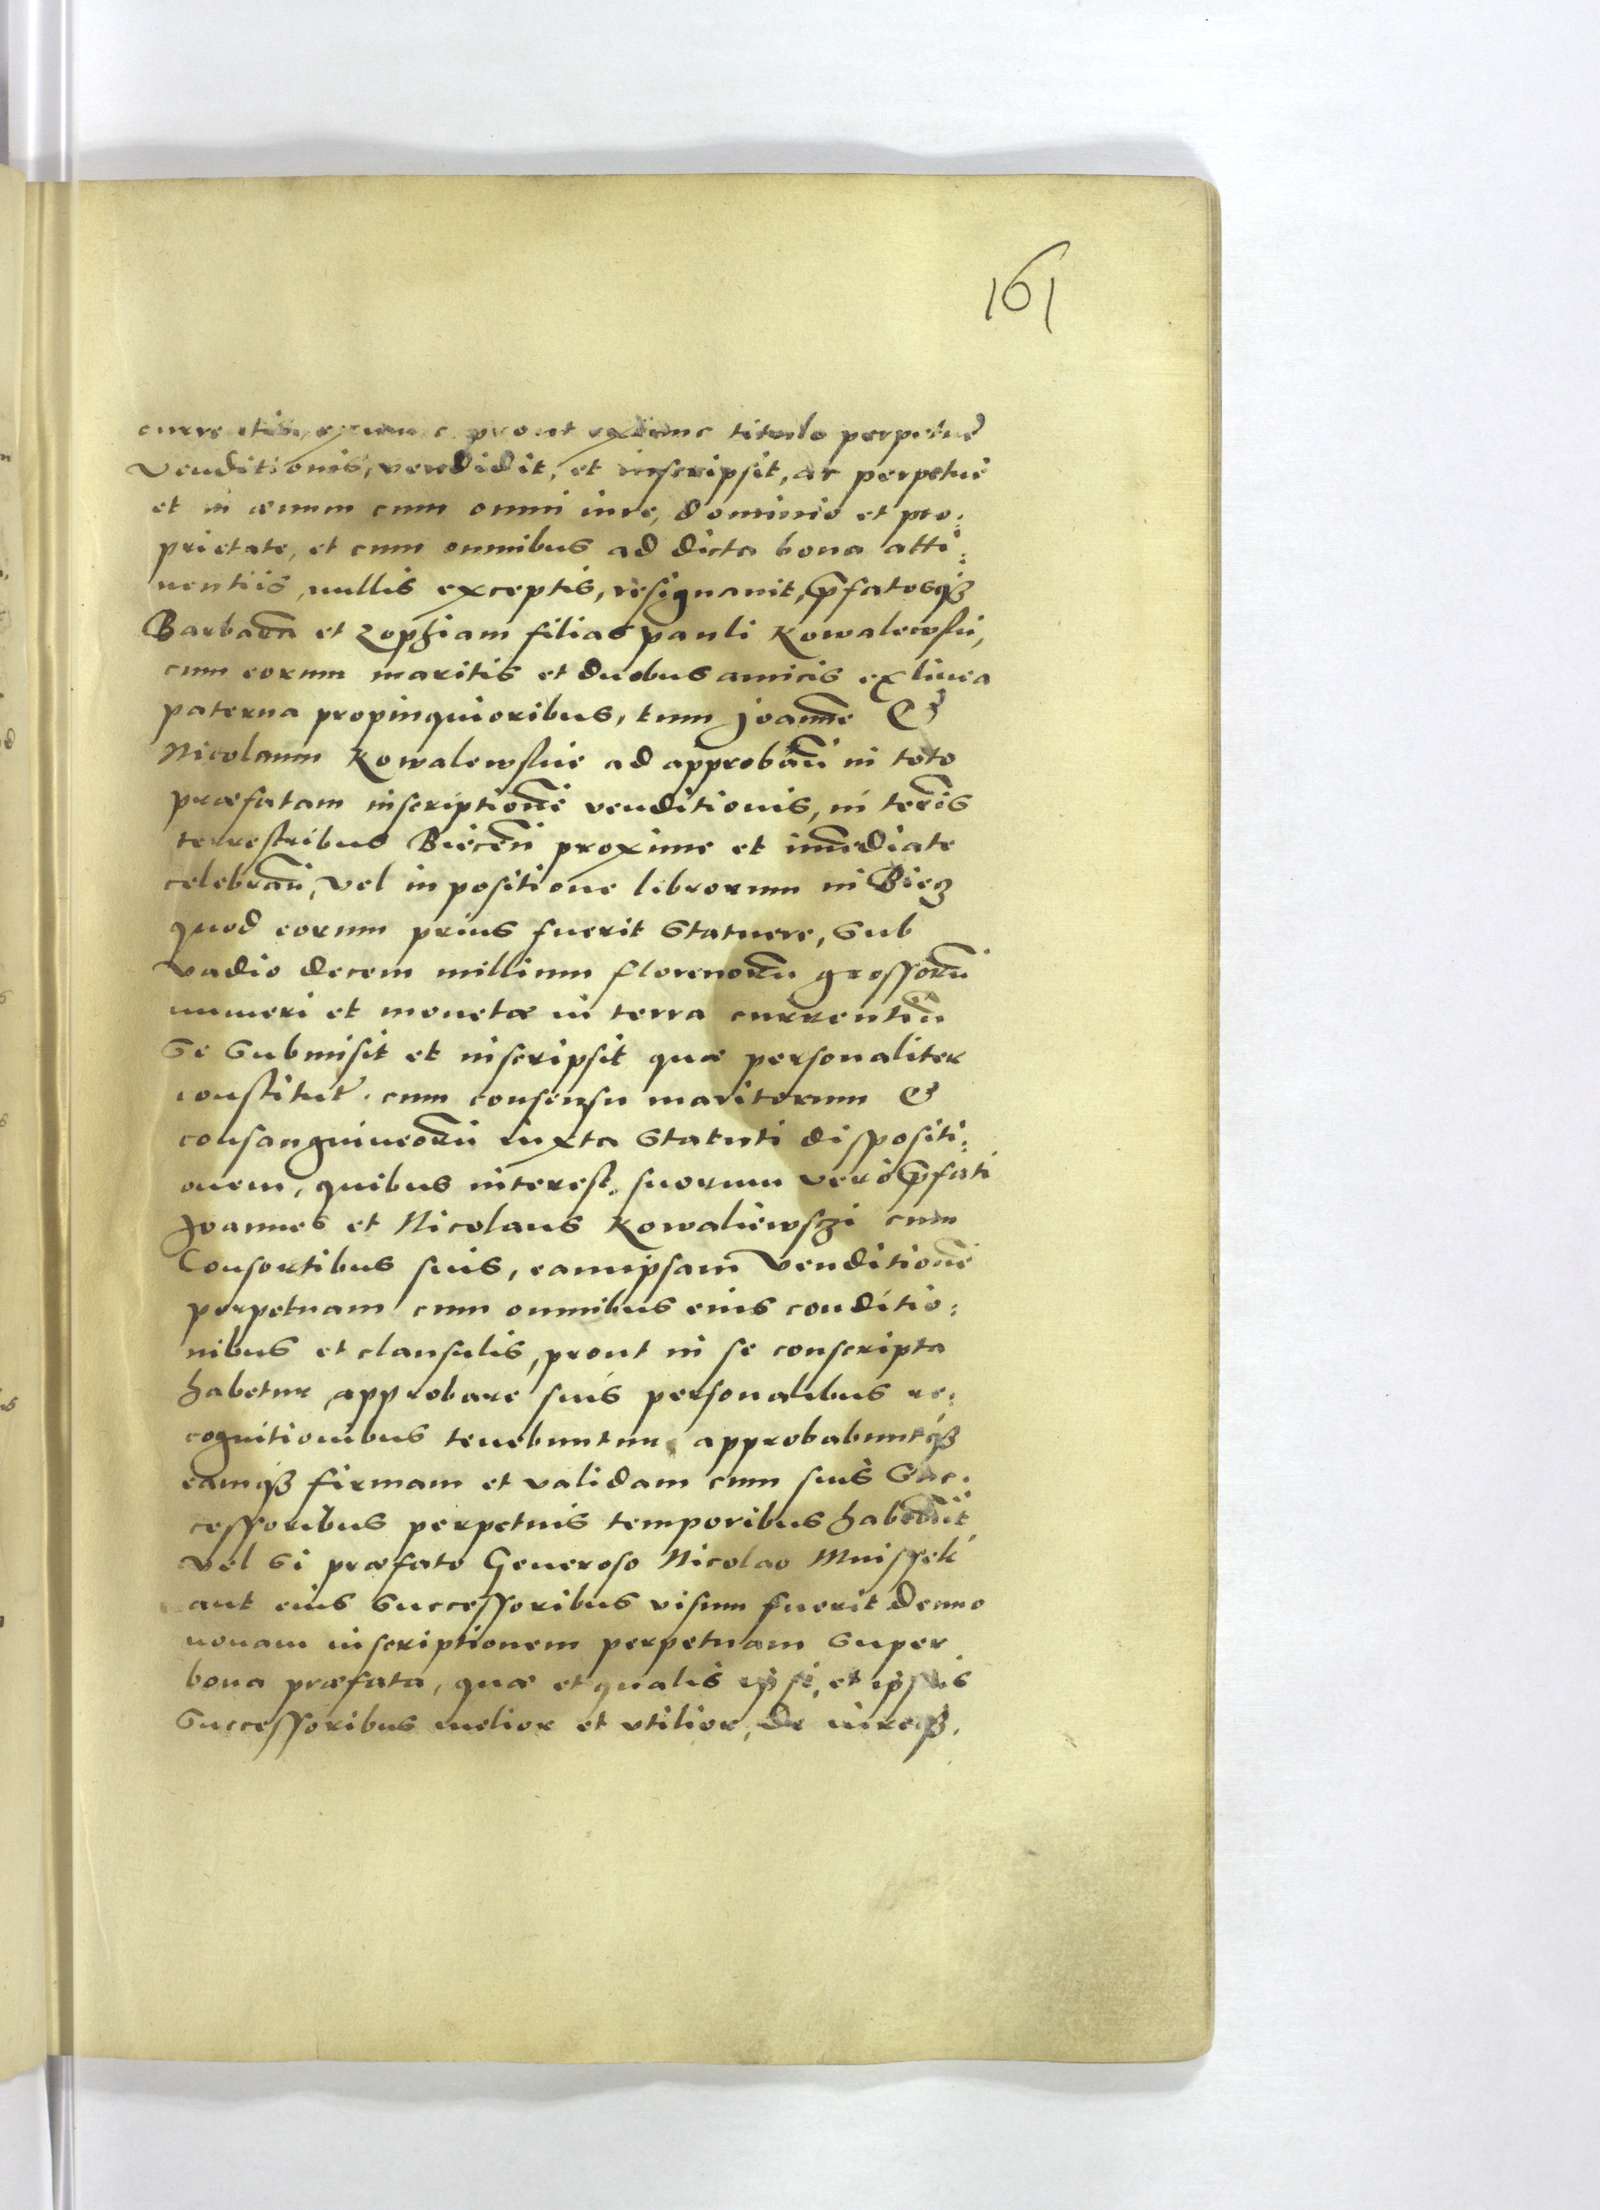 161
currentium, extunc prout exnunc titulo perpetuę
venditionis, vendidit, et inscripsit, ac perpetue
et in ævum cum omni iure, dominio et pro:
prietate, et cum omnibus ad dicta bona atti:
nentiis, nullis exceptis, resignavit, p̄fatosqȝ
Barbarā et Zophiam filias pauli Kowalewski,
cum eorum maritis et duobus amicis ex linea
paterna propinquioribus, tum Joannē &
Nicolaum Kowalewskie ad approbān in toto
præfatam inscriptionē venditionis, in termīs
terrestribus Biecēn proxime et imēdiate
celebrān, vel in positione librorum in Biecz
quod eorum prius fuerit statuere, sub
vadio decem millium florenorū grossorū
numeri et monetæ in terra currentiū
se submisit et inscripsit quæ personaliter
constitutę cum consensu maritorum &
consanguineorū iuxta statuti dispositi:
onem, quibus interest, suorum vero p̄fati
Joannes et Nicolaus Kowaliewszi cum
Consortibus suis, eamipsam venditionē
perpetuam cum omnibus eius conditio:
nibus et clausulis, prout in se conscripta
habetur approbare suis personalibus re:
cognitionibus tenebuntur, approbabuntqȝ
eamqȝ firmam et validam cum suis suc:
cessoribus perpetuis temporibus habebūt
vel si præfato Generoso Nicolao Mnissek
aut eius successoribus visum fuerit denuo
novam inscriptionem perpetuam super
bona præfata, quæ et qualis ipsi, et ipsius
successoribus melior et utilior, de iureqȝ.